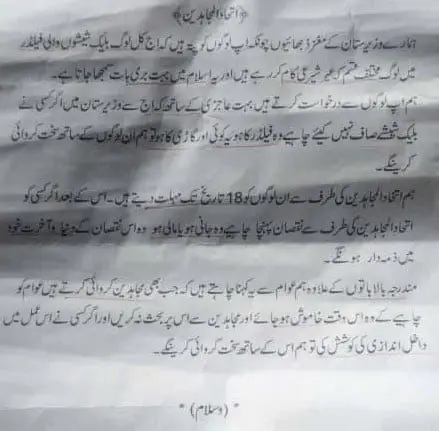 ﴿ اتحاد المجاہدین ﴾
ہمارے وزیرستان کے معزز بھائیوں چونکہ اپ لوگوں کو پتہ ہیں کہ اج کل لوگ بلیک شیشوں والی فیلڈر
میں لوگ مختلف قسم کے غیر شرعی کام کر رہے ہیں اور یہ اسلام میں بہت بری بات سمجھا جاتا ہے۔
ہم اپ لوگوں سے درخواست کرتے ہیں بہت عاجزی کے ساتھ کہ اج سے وزیرستان میں اگر کسی نے
بلیک شیشے صاف نہیں کیئے چاہیے وہ فیلڈر کا ہو یہ کوئی اور گاڑی کا ہو تو ہم ان لوگوں کے ساتھ سخت کروائی
کرینگے۔
ہم اتحاد المجاہدین کی طرف سے ان لوگوں کو 18 تاریخ تک مہلت دیتے ہیں۔ اس کے بعد اگر کسی کو
اتحاد المجاہدین کی طرف سے نقصان پہنچا چاہیے وہ جانی ہو یا مالی ہو وہ اس نقصان کے دنیا و آخرت خود
میں ذمہ دار ہونگے۔
مندرجہ بالا باتوں کے علاوہ ہم عوام سے یہ کہنا چاہتے ہیں کہ جب بھی مجاہدین کروائی کرتے ہیں عوام کو
چاہیے کے وہ اس وقت خاموش ہو جائے اور مجاہدین سے اس پر بحث نہ کریں اور اگر کسی نے اس عمل میں
داخل اندازی کی کوشش کی تو ہم اس کے ساتھ سخت کروائی کرینگے۔
* (وسلام) *